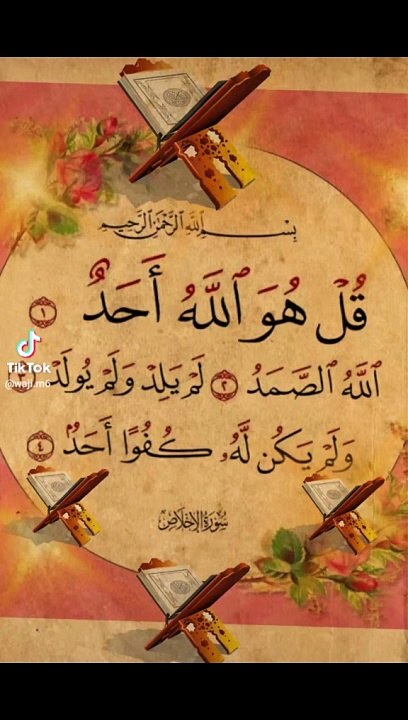 بِسْمِ ٱللَّهِ ٱلرَّحْمَٰنِ ٱلرَّحِيمِ
قُلْ هُوَ ٱللَّهُ أَحَدٌ ١
ٱللَّهُ ٱلصَّمَدُ ٢ لَمْ يَلِدْ وَلَمْ يُولَدْ ٣
وَلَمْ يَكُن لَّهُۥ كُفُوًا أَحَدٌۢ ٤
سُورَةُ الإِخْلَاصِ
TikTok
@waji.m6